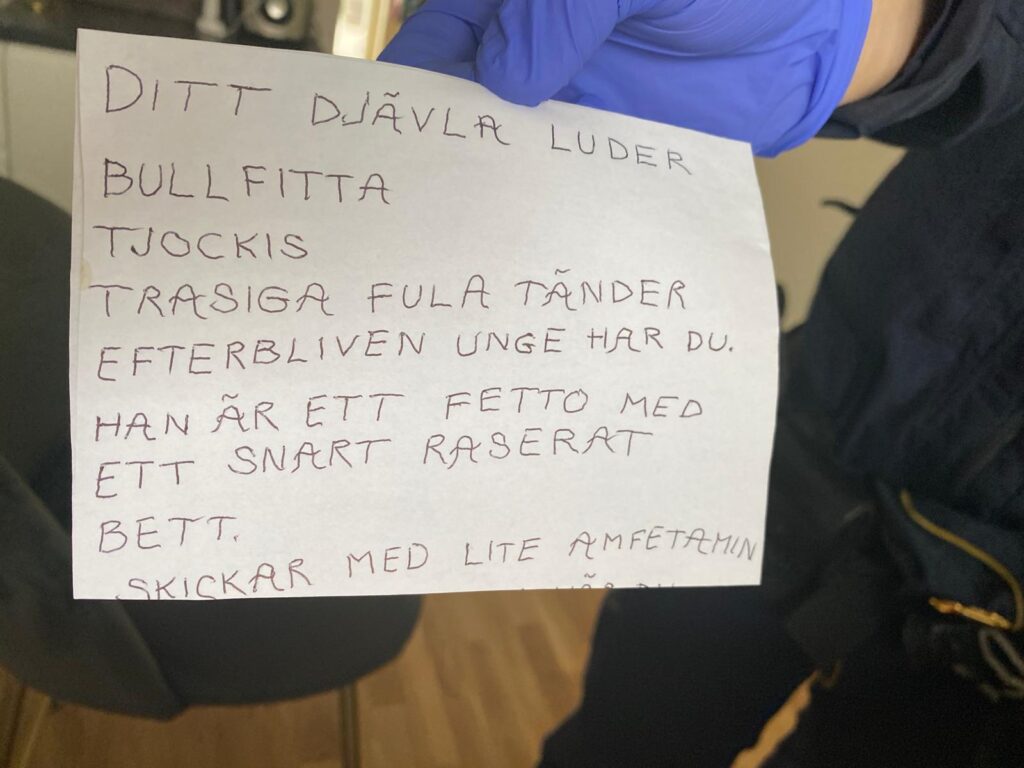 DITT DJÄVLA LUDER
BULLFITTA
TJOCKIS
TRASIGA FULA TÄNDER
EFTERBLIVEN UNGE HAR DU.
HAN ÄR ETT FETTO MED
ETT SNART RASERAT
BETT.
SKICKAR MED LITE AMFETAMIN